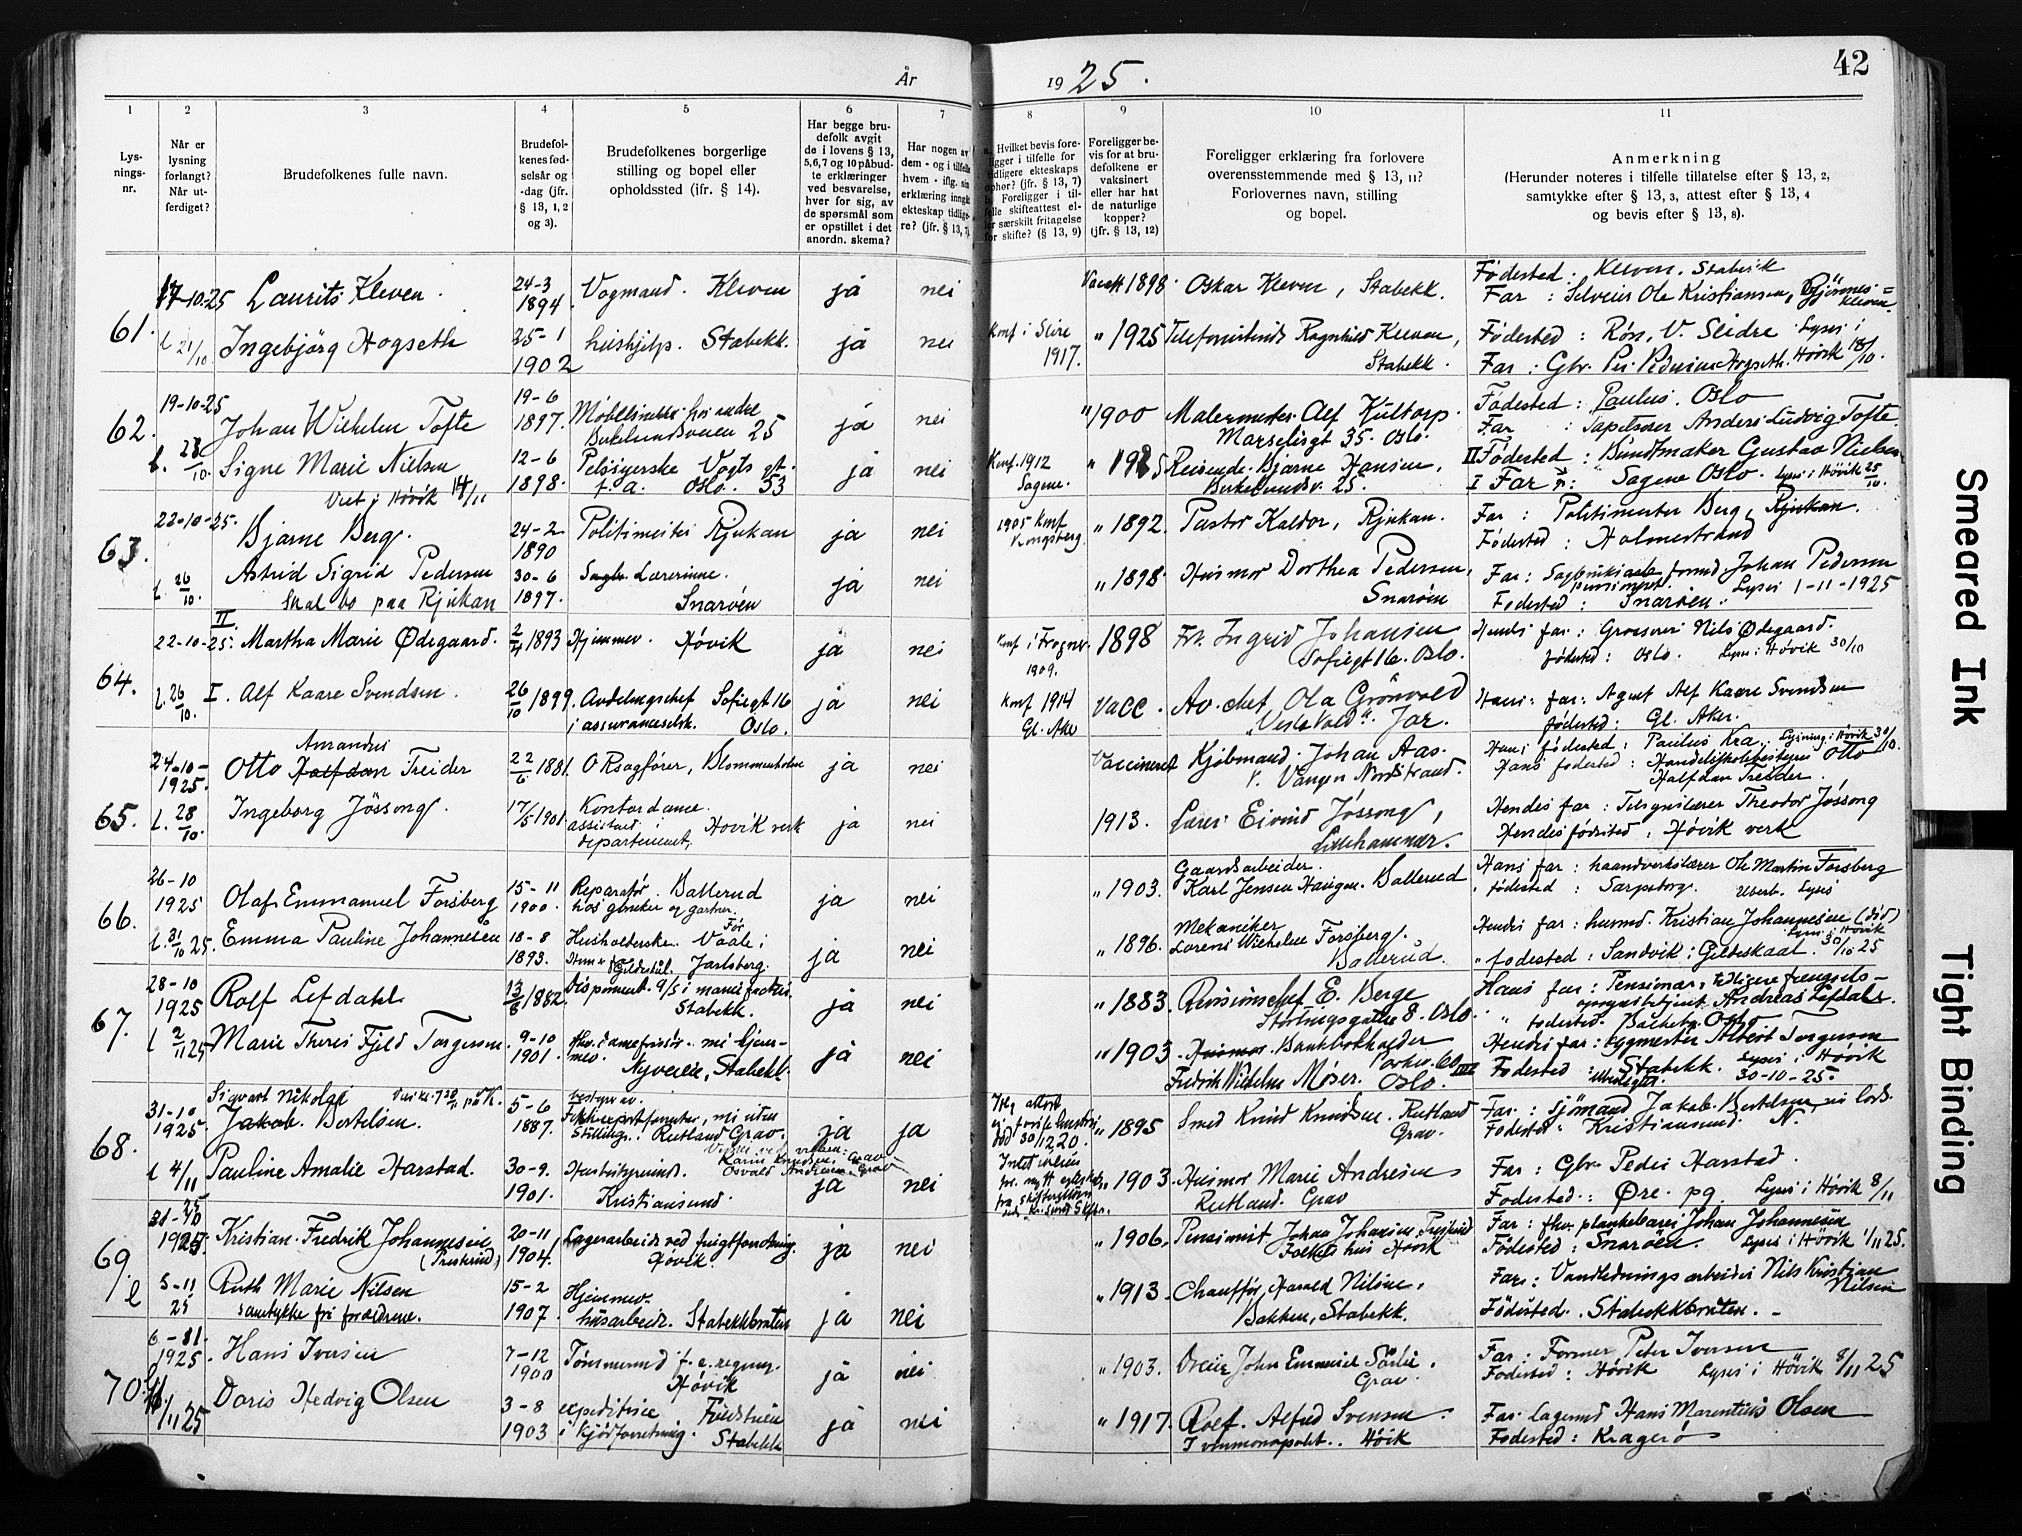 42
År 1925.
1
Lys-
nings-
nr.
2
Når er
lysning
forlangt?
Når ut-
ferdiget?
3
Brudefolkenes fulle navn.
4
Brudefol-
kenes fød-
selsår og
-dag (jfr.
§ 13, 1, 2
og 3).
5
Brudefolkenes borgerlige
stilling og bopel eller
opholdssted (jfr. § 14).
6
Har begge bru-
defolk avgit
de i lovens § 13,
5, 6, 7 og 10 påbud-
te erklæringer
ved besvarelse,
hver for sig, av
de spørsmål som
er opstillet i det
anordn. skema?
7
Har nogen av
dem - og i tilfelle
hvem - iflg. sin
erklæring inngått
ekteskap tidlige-
re? (jfr. § 13, 7)
8
Hvilket bevis fore-
ligger i tilfelle for
tidligere ekteskaps
ophør? (jfr. § 13, 7)
b. Foreligger i til-
felle skifteattest el-
ler særskilt fritagelse
for skifte? (§ 13, 9)
9
Foreligger be-
vis for at bru-
defolkene er
vaksinert
eller har hat
de naturlige
kopper?
(jfr. § 13, 12)
10
Foreligger erklæring fra forlovere
overensstemmende med § 13, 11?
Forlovernes navn, stilling
og bopel.
11
Anmerkning
(Herunder noteres i tilfelle tillatelse efter § 13, 2,
samtykke efter § 13, 3, attest efter § 13, 4
og bevis efter § 13, 8).
61.
17-10-25 Laurits Kleven. 24-3 1894. Vognmand. Kleven ja nei
Vacc. 1898. Oskar Kleven, Stabekk.
Fødested: Kleven, Stabekk
Far: Ole Kristiansen,
l 21/10 Ingebjörg Hogseth 25-1 1902 hushjelp. Stabekk. ja nei
Konf i Slire 1917. " 1925 Ragnhild Kleven, Stabekk.
Fødested: Røn, V. Slidre Lyses i Høvik 18/10.
Far: Gbr. Per Pedersen Hogseth.
62.
19-10-25 Johan Wilhelm Tofte 19-6 1897. 25 ja nei
" 1900 Malermester Alf Kultorp. Marselisgt 35. Oslo.
Fødested: Paulus. Oslo
Far: Tapetserer Anders Ludvig Tofte.
l. 23/10. Signe Marie Nielsen 12-6 1898. Pelssyerske Vogts gt. 53 Oslo. ja nei
Viet i Høvik 14/11
Konf. 1912 Sagene. " 1925 Reisende Bjarne Hansen, 25.
II Fødested: Bundtmaker Gustav Nielsen
I Far: Sagene Oslo. Lyses i Høvik 25/10.
63.
22-10-25. Bjarne Berg. 24-2 1890 Politimester Rjukan ja nei
1905 Konf Kongsberg. " 1892. Pastor Kaldor, Rjukan.
Far: Politimester Berg, Rjukan.
Fødested: Holmestrand
l. 26/10. Astrid Sigrid Pedersen 30-6 1897. Lærerinne. Snarøen ja nei
Skal bo paa Rjukan
" 1898. Husmor Dorthea Pedersen, Snarøen
Far: Sagbruksarb. formd Johan Pedersen
Fødested: Snarøen. Lyses 1-11-1925
64.
22-10-25. II Martha Marie Ødegaard. 2/4 1893 Hjemmev. Høvik ja nei
Konf i Frogner 1909. 1898 Frk. Ingrid Johansen Sofiegt 16. Oslo.
Hendes far: Grosserer Nils Ødegaard.
fødested: Oslo. Lyses i Høvik 30/10
l. 26/10. I. Alf Kaare Svendsen. 26/10 1899. Avdelingschef Sofiegt 16 i assuranceselsk. Oslo. ja nei
Konf 1914 Gl. Aker Vacc. Av. chef Ola Grönvold "Vesle Vold". Jar.
Hans far: Agent Alf Kaare Svendsen
fødested: Gl. Aker.
65.
24-10-1925. Otto Amandus Halfdan Treider 22/6 1881. ORsagfører, Blommenholm ja nei
Vaccineret Kjøbmand Johan Aas. Nordstrand.
Hans fødested: Paulus Kra. Lysning i Høvik 30/10.
Otto Halfdan Treider.
l. 28/10. Ingeborg Jössong. 17/5 1901. Kontordame. assistent i departement, Høvik verk ja nei
1913. Lærer Eivind Jössong, Lillehammer.
Hendes far: Theodor Jössong
Hendes fødested: Høvik verk
66.
26-10 1925 Olaf Emmanuel Forsberg 15-11 1900. Reparatør. Ballerud hos gbruker og gartner. ja nei
" 1903. Gaardsarbeider. Karl Jensen Haugen. Ballerud
Hans far: haandverkslærer Ole Martin Forsberg
" fødested: Sarpsborg. Lyses
l. 31/10 25. Emma Pauline Johannesen 18-8 1893. Husholderske. Vaale i Jarlsberg. ja nei
" 1896. Mekaniker Lorens Wilhelm Forsberg. Ballerud.
Hendes far: husmd. Kristian Johannesen (död)
" fødested: Sandvik i Gildeskaal. Lyses i Høvik 30/10 25
67.
28-10 1925 Rolf Lefdahl 13/6 1882. Disponent Stabekk. ja nei
" 1883. Revisionschef E. Berge Stortingsgaten 8. Oslo
Hans far: Pensionær, tidligere fengsels-
Andreas Lefdahl.
" fødested. Oslo
l 2/11 25 Marie Theres Fjeld Torgersen 9-10 1901. Nyveien, Stabekk. ja nei
" 1903. Husmor. Bankbokholder Fredrik Wilhelm Møser. Oslo.
Hendes far: bygmester Albert Torgersen
Fødested: Stabekk. Lyses i Høvik 30-10-25.
68.
31-10 1925. Sigvart Nikolai Jakob Bertelsen. 5-6 1887. Rutland Grav. ja ja
30/12 20. " 1895 Smed Knud Knudsen. Rutland Grav.
Far: Sjömand Jakob Bertelsen
Fødested: Kristiansund N.
l 4/11 25 Pauline Amalie Harstad. 30-9. 1901. Kristiansund. ja nei
" 1903. Husmor Marie Andresen Rutland. Grav
Far: Gbr. Peder Harstad.
Fødested: Øre. pg. Lyses i Høvik 8/11
69.
31-10 1925. Kristian Fredrik Johannesen (Presterud) 20-11 1904. Lagerarbeider ved Høvik. ja nei
" 1906. Pensionist Johan Johansen Folkets hus Høvik
Far: fhv. plankebærer Johan Johannesen
Fødested: Snarøen. Lyses i Høvik 1/11 25.
l 5-11 25 Ruth Marie Nilsen 15-2 1907. Hjemmev. husarbeide. Stabekkbraten ja nei
samtykke fra forældrene.
" 1913. Chauffør Harald Nilsen, Bakken, Stabekk.
Far: Vandledningsarbeider Nils Kristian Nilsen
Fødested. Stabekkbraten.
70.
6-11 1925. Hans Iversen 7-12 1900 Tømmermd f. e. regning. Høvik ja nei
" 1903. Dreier John Emmanuel Sørlie. Grav.
Far. Former Peter Iversen
Fødested: Høvik Lyses i Høvik 8/11 25
11/11 25 Doris Hedvig Olsen 3-8 1903 expeditrise i kjødforretning. Stabekk ja nei
" 1917. Rolf Alfred Svensen. I vinmonopolet. Høvik
Far. Lagermd Hans Marentius Olsen
Fødested: Kragerø
Smeared Ink
Tight Binding